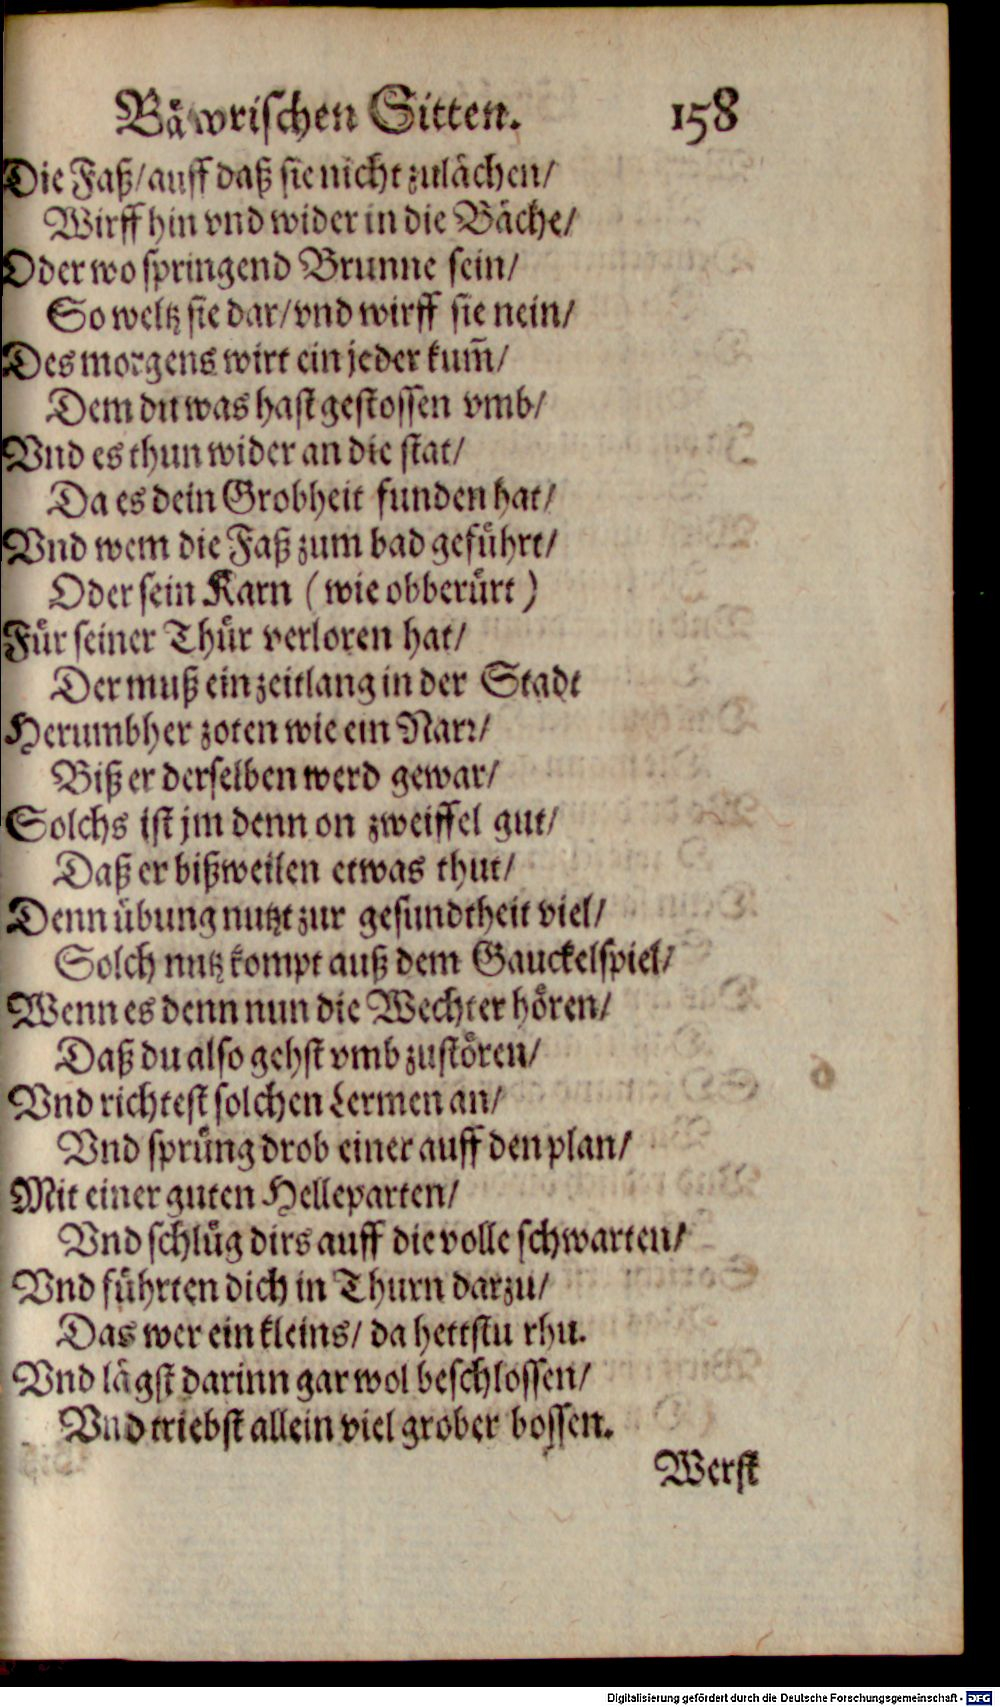 Bäwrischen Sitten. 158
Die Faß/ auff daß sie nicht zulächen/
Wirff hin vnd wider in die Bäche/
Oder wo springend Brunne sein/
So weltz sie dar/ vnd wirff sie nein/
Des morgens wirt ein jeder kum̃/
Dem du was hast gestossen vmb/
Vnd es thun wider an die stat/
Da es dein Grobheit funden hat/
Vnd wem die Faß zum bad geführt/
Oder sein Karn (wie obberürt)
Für seiner Thür verloren hat/
Der muß ein zeitlang in der Stadt
Herumbher zoten wie ein Narr/
Biß er derselben werd gewar/
Solchs ist jm denn on zweiffel gut/
Daß er bißweilen etwas thut/
Denn übung nutzt zur gesundtheit viel/
Solch nutz kompt auß dem Gauckelspiel/
Wenn es denn nun die Wechter hören/
Daß du also gehst vmb zustören/
Vnd richtest solchen Lermen an/
Vnd sprüng drob einer auff den plan/
Mit einer guten Helleparten/
Vnd schlüg dirs auff die volle schwarten/
Vnd führten dich in Thurn darzu/
Das wer ein kleins/ da hettstu rhu.
Vnd lägst darinn gar wol beschlossen/
Vnd triebst allein viel grober bossen.
Werst
Digitalisierung gefördert durch die Deutsche Forschungsgemeinschaft - DFG